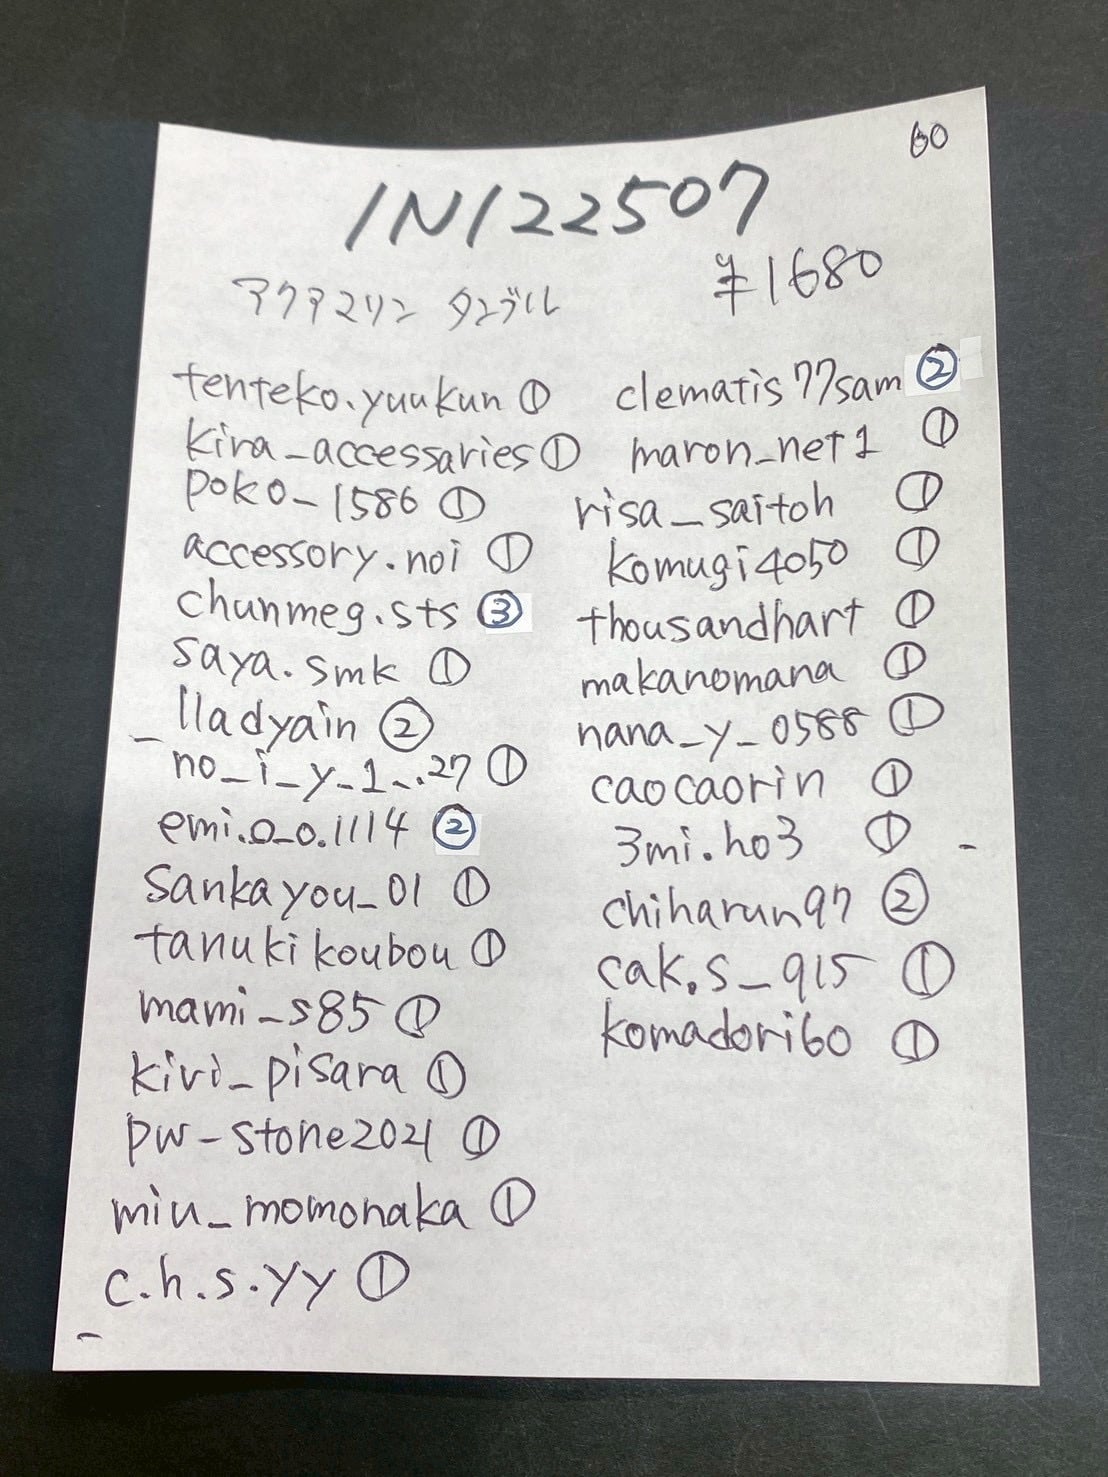 60
IN122507
¥1680
アクアマリン タンブル
tenteko.yuukun ①
kira_accessaries ①
poko_1586 ①
accessory.noi ①
chunmeg.sts ③
saya.smk ①
_lladyain ②
no_i_y_1_..27 ①
emi.o_o.1114 ②
sankayou_01 ①
tanukikoubou ①
mami_s85 ①
kivi_pisara ①
pw_stone2021 ①
miu_momonaka ①
c.h.s.yy ①
clematis77sam ②
maron_net1 ①
risa_saitoh ①
komugi4050 ①
thousandhart ①
makanomana ①
nana_y_0588 ①
caocaorin ①
3mi.ho3 ①
chiharun97 ②
cak.s_915 ①
komadori60 ①